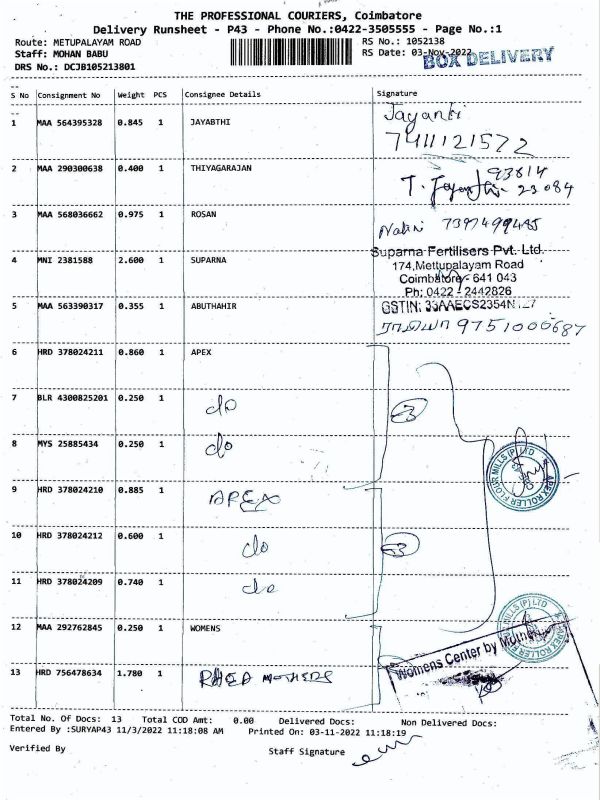 THE PROFESSIONAL COURIERS, Coimbatore
Delivery Runsheet - P43 - Phone No.:0422-3505555 - Page No.:1
Route: METUPALAYAM ROAD
RS No.: 1052138
Staff: MOHAN BABU
RS Date: 03-Nov-2022
BOX DELIVERY
DRS No.: DCJB105213801
S No Consignment No Weight PCS Consignee Details Signature
1 MAA 564395328 0.845 1 JAYABTHI Jayanti
7411121572
2 MAA 290300638 0.400 1 THIYAGARAJAN 93814
23084
3 MAA 568036662 0.975 1 ROSAN Nalini 7397499485
4 MNI 2381588 2.600 1 SUPARNA Suparna Fertilisers Pvt. Ltd.
174,Mettupalayam Road
Coimbatore - 641 043
Ph: 0422 - 2442826
5 MAA 563390317 0.355 1 ABUTHAHIR GSTIN: 33AAECS2354N
9751000687
6 HRD 378024211 0.860 1 APEX
7 BLR 4300825201 0.250 1 do 3
8 MYS 25885434 0.250 1 do
APEX ROLLER FLOUR MILLS (P) LTD
9 HRD 378024210 0.885 1 APEX
10 HRD 378024212 0.600 1 do 3
11 HRD 378024209 0.740 1 do
12 MAA 292762845 0.250 1 WOMENS
MILLS (P) LTD
Womens Center by Motherhood
13 HRD 756478634 1.780 1 RHEA MOTHERS
Total No. Of Docs: 13 Total COD Amt: 0.00 Delivered Docs: Non Delivered Docs:
Entered By :SURYAP43 11/3/2022 11:18:08 AM Printed On: 03-11-2022 11:18:19
Verified By Staff Signature